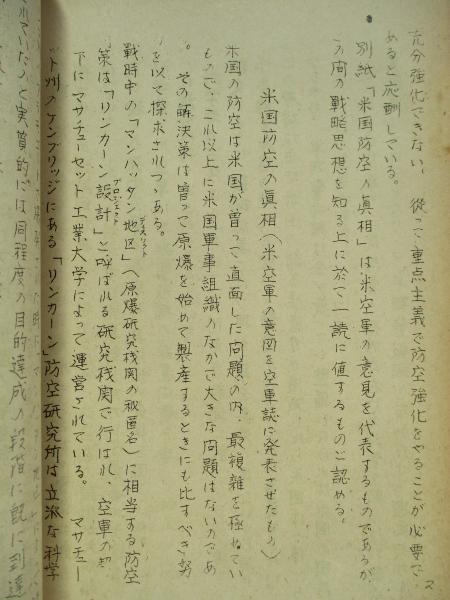 充分強化できない、従って重点主義で防空強化をやることが必要で
あると応酬している。
別紙「米国防空の真相」は米空軍の意見を代表するものであるが
の間の戦略思想を知る上に於て一読に値するものと認める。
米国防空の眞相(米空軍の意図を空軍誌に発表させたもの)
米国の防空は米国が曽って直面した問題の内、最複雑を極めてい
もので、これ以上に米国軍事組織のなかで大きな問題はないのであ
。その解決策は曽って原爆を始めて製産するときにも比すべき努
を以て探求されつゝある。
戦時中の「マンハッタン地区」(原爆研究機関の秘匿名)に相当する防空
ディストリクト
策は「リンカーン設計」と呼ばれる研究機関で行はれ、空軍の
プロジェクト
下にマサチューセット工業大学によって運営されている。 マサチュー
ット州のケンブリッジにある「リンカーン」防空研究所は立派な科学
れていたのと実質的には同程度の目的達成の段階に既に到達
2